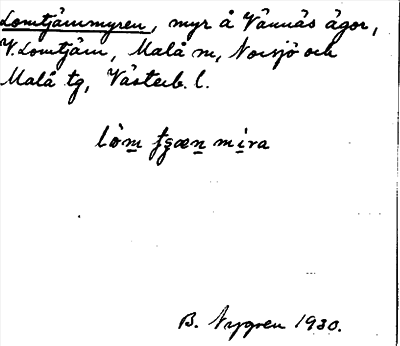 Lomtjärnmyren, myr å Vännäs ägor,
V. Lomtjärn, Malå sn, Norsjö och
Malå tg, Västerb. l.
lòm̲ tʂæn̲ mi̲ra
B. Nygren 1930.